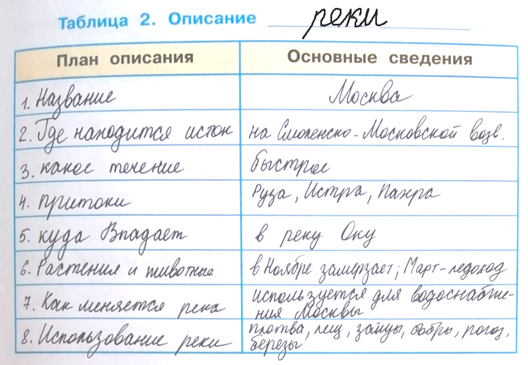 Таблица 2. Описание реки
План описания Основные сведения
1. Название Москва
2. Где находится исток на Смоленско-Московской возв.
3. какое течение быстрое
4. притоки Руза, Истра, Пахра
5. куда Впадает в реку Оку
6. Растения и животные в Ноябре замерзает; Март-ледоход
7. Как меняется река используется для водоснабже-
ния Москвы
8. Использование реки плотва, лещ, зайцы, бобры, рогоз,
березы